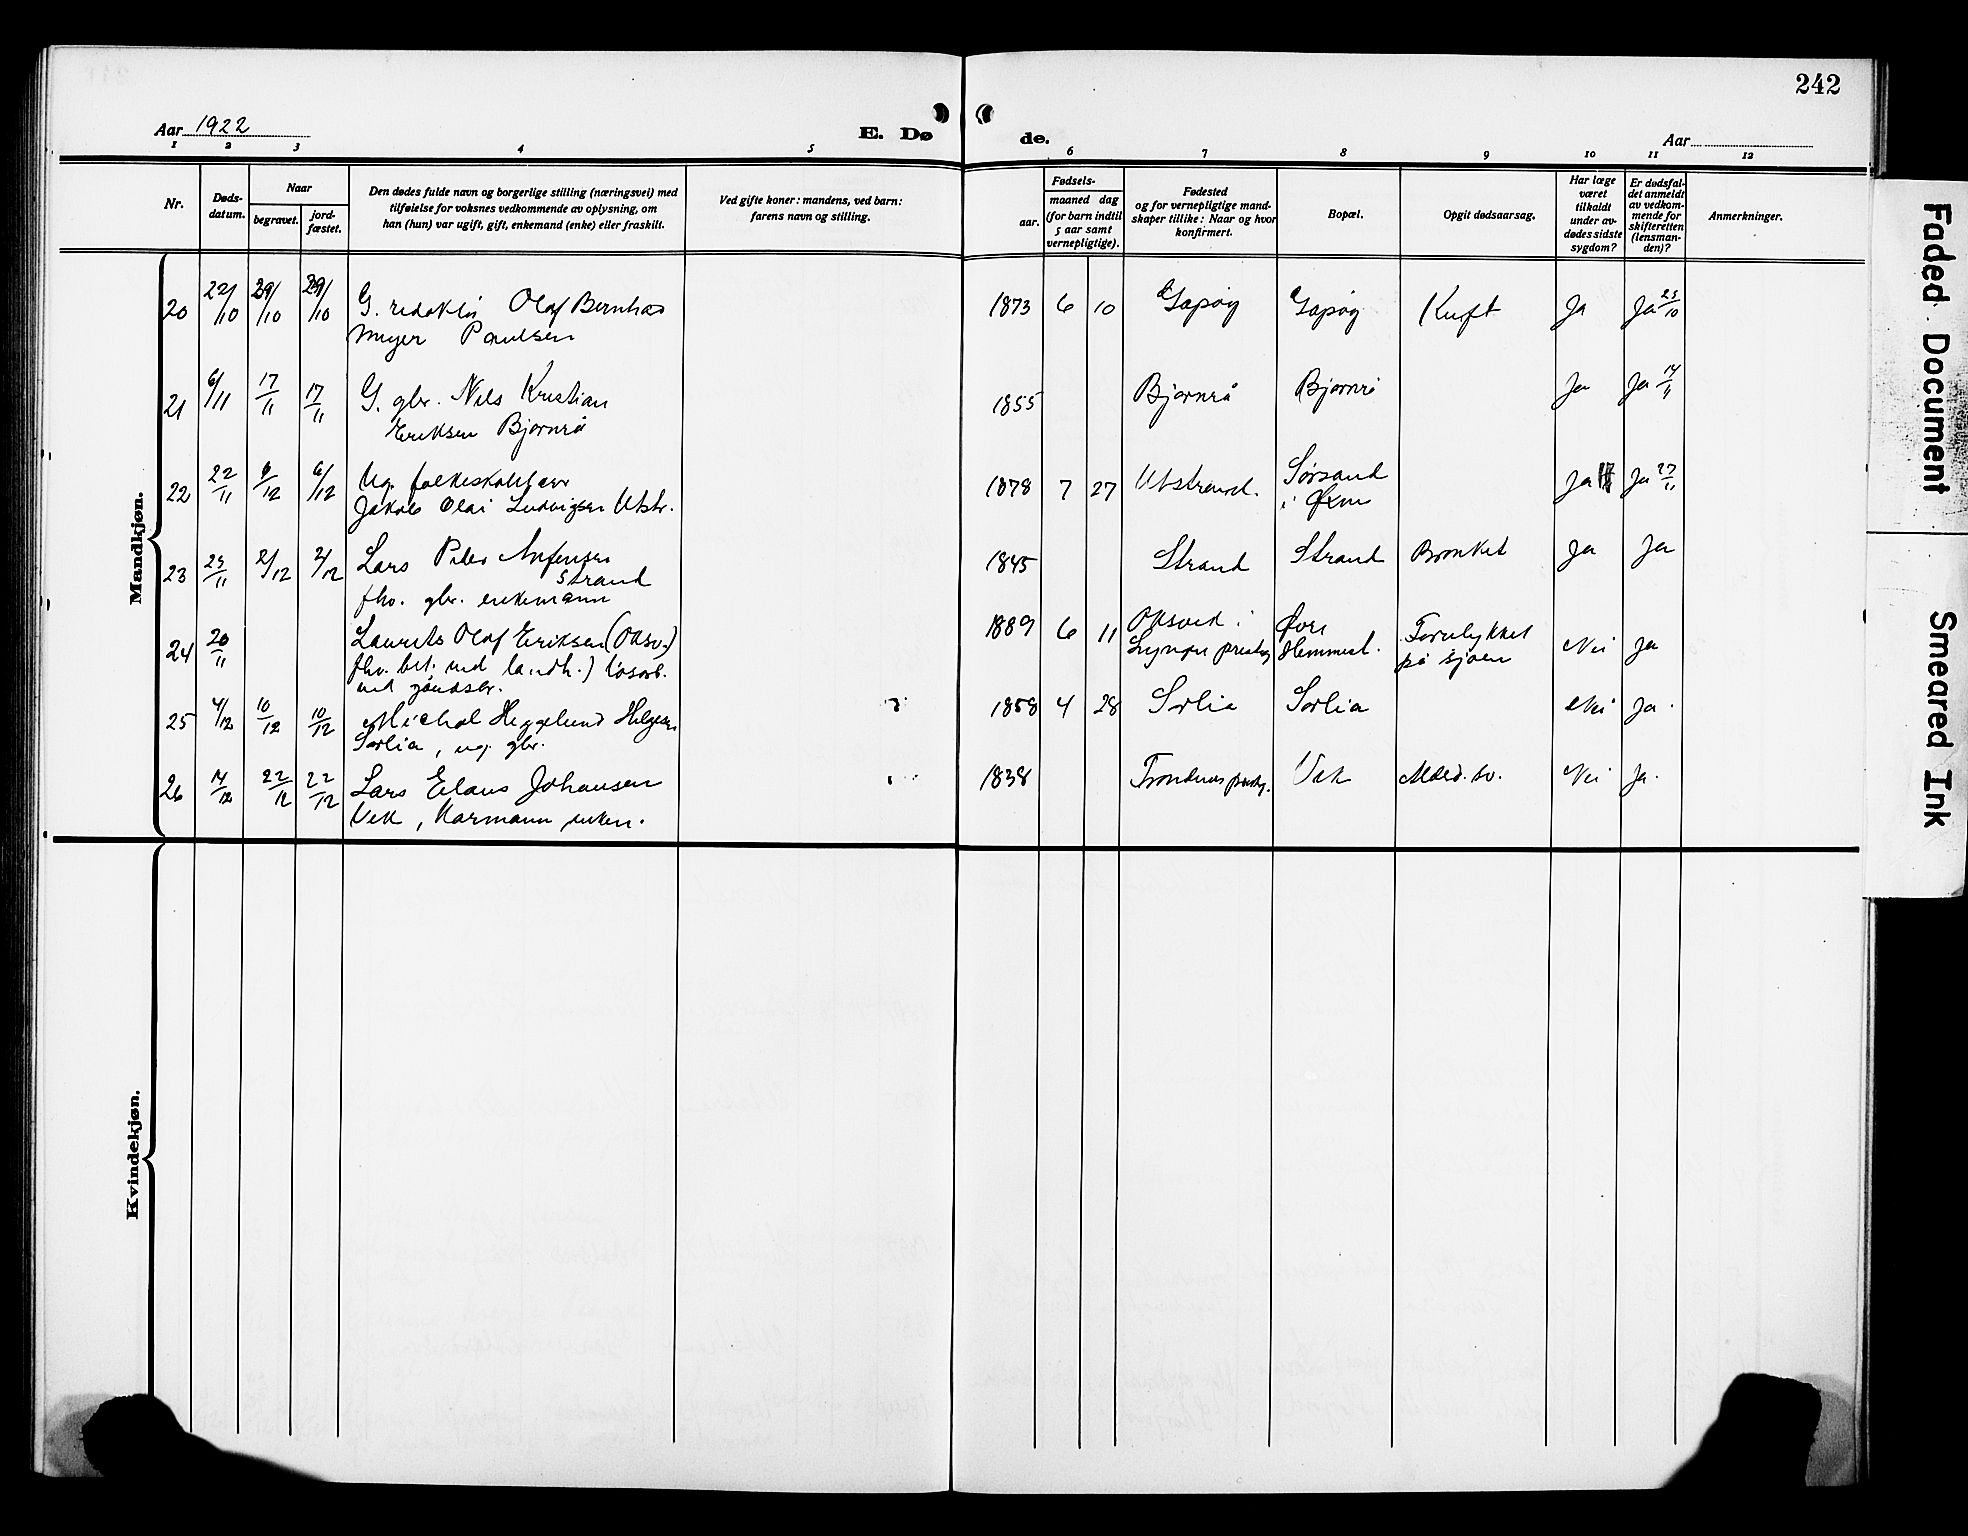 242
Aar 1922
E. Dø
de.
Aar
1 2 3 4 5 6 7 8 9 10 11 12
Nr.
Døds-
datum.
Naar
begravet.
jord-
fæstet.
Den dødes fulde navn og borgerlige stilling (næringsvei) med
tilføielse for voksnes vedkommende av oplysning, om
han (hun) var ugift, gift, enkemand (enke) eller fraskilt.
Ved gifte koner: mandens, ved barn:
farens navn og stilling.
Fødsels-
aar.
maaned dag
(for barn indtil
5 aar samt
vernepligtige).
Fødested
og for vernepligtige mand-
skaper tillike: Naar og hvor
konfirmert.
Bopæl.
Opgit dødsaarsag.
Har læge
været
tilkaldt
under av-
dødes sidste
sygdom?
Er dødsfal-
det anmeldt
av vedkom-
mende for
skifteretten
(lensman-
den)?
Anmerkninger.
Mandkjøn.
20 22/10 29/10 29/10 G. redaktør Olaf Bernhard
Meyer Paulsen
1873 6 10 Gapøy Gapøy Kreft Ja Ja 25/10
21 6/11 17/11 17/11 G. gbr. Nils Kristian
Eriksen Bjørnrå
1855 Bjørnrå Bjørnrå Ja Ja 14/11
22 22/11 6/12 6/12 Ug. folkeskolelærer
Jakob Olai Ludvigsen Utstr.
1878 7 27 Utstrand. Sørsand
i
Ja Ja 27/11
23 25/11 2/12 2/12 Lars Peder Anfinsen
Strand
fhv. gbr. enkemann
1845 Strand Strand Bronkit Ja Ja
24 20/11 Laurits Olaf Eriksen (Oksv.)
fhv. bet. ved landh.) løsarb.
ved
1889 6 11 Oksvik i
Lyngen prestegj
Øvre
Hemmest.
Forulykket
på sjøen
Nei Ja
25 4/12 10/12 10/12 Michal Heggelund Helgesen
Sørlia, ug. gbr.
1858 4 28 Sørlia Sørlia Nei Ja.
26 14/12 22/12 22/12 Lars Elaus Johansen
Vik, kårmann, enkem.
1838 Trondenes prestegj. Vik Alderd. sv. Nei Ja.
Kvindekjøn.
Faded Document
Smeared Ink